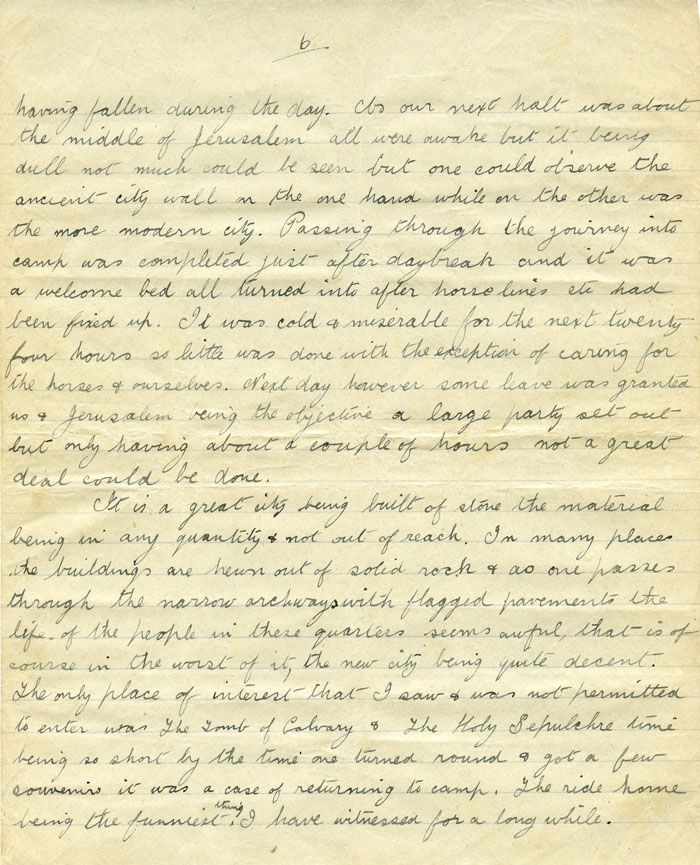 6
having fallen during the day. As our next halt was about
the middle of Jerusalem all were awake but it being
dull not much could be seen but one could observe the
ancient city wall on the one hand while on the other was
the more modern city. Passing through the journey into
camp was completed just after daybreak and it was
a welcome bed all turned into after horselines etc had
been fixed up. It was cold & miserable for the next twenty
four hours so little was done with the exception of caring for
the horses & ourselves. Next day however some leave was granted
us & Jerusalem being the objective a large party set out
but only having about a couple of hours not a great
deal could be done.
It is a great city being built of stone the material
being in any quantity & not out of reach. In many places
the buildings are hewn out of solid rock & as one passes
through the narrow archways with flagged pavements the
life of the people in these quarters seems awful, that is of
course in the worst of it, the new city being quite decent.
The only place of interest that I saw & was not permitted
to enter was The Tomb of Calvary & The Holy Sepulchre time
being so short by the time one turned round & got a few
souvenirs it was a case of returning to camp. The ride home
being the funniest thing I have witnessed for a long while.